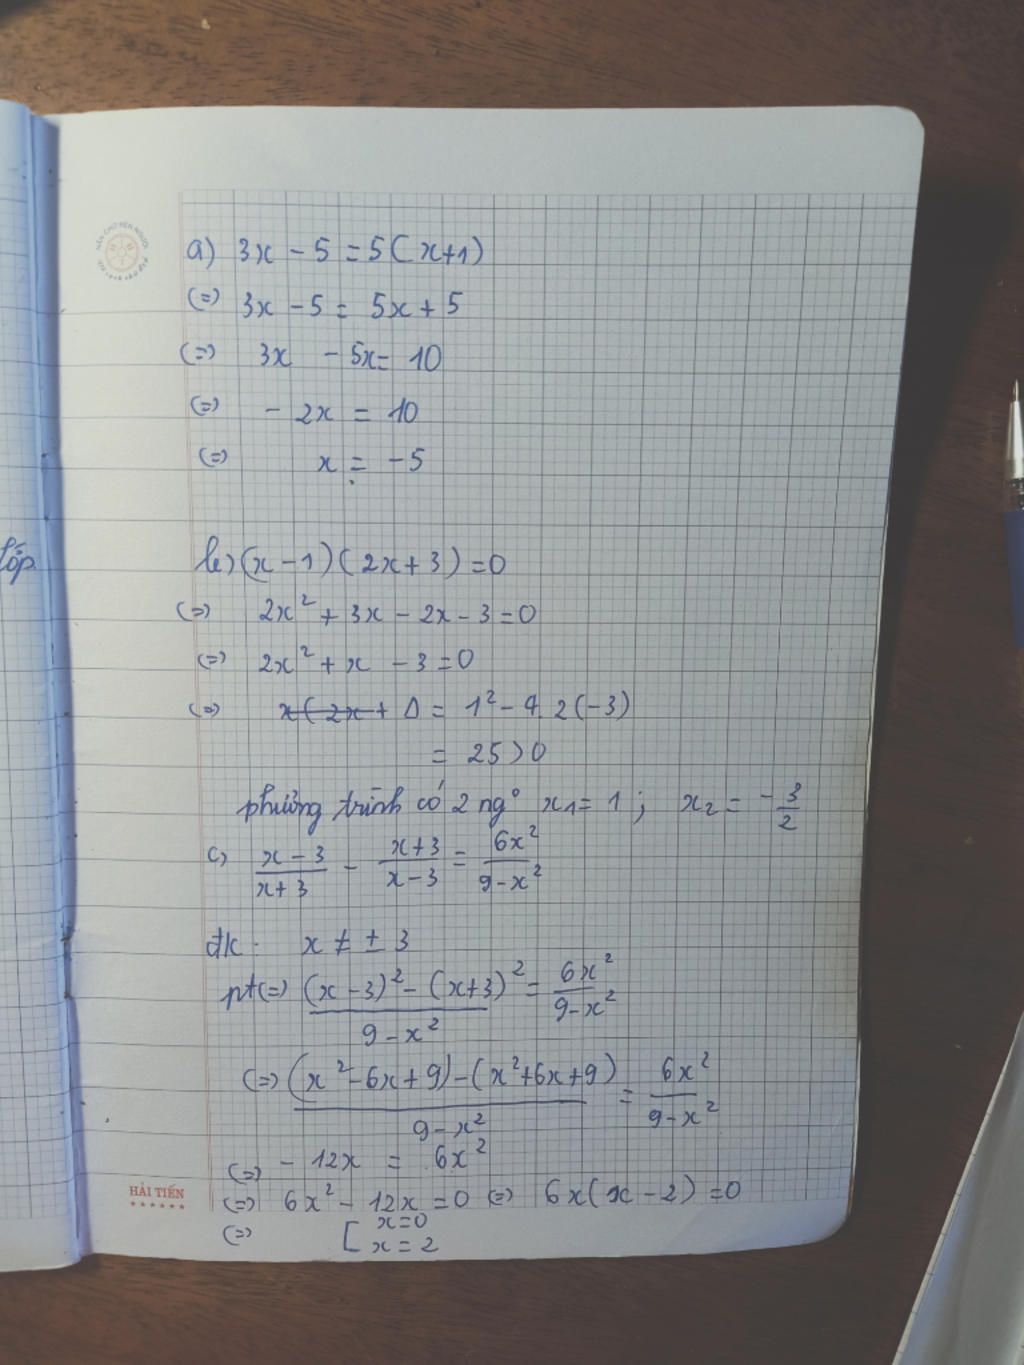 a) 3x - 5 = 5(x+1)
(=) 3x - 5 = 5x + 5
(=) 3x - 5x = 10
(=) - 2x = 10
(=) x = -5
lớp
b) (x - 1)(2x + 3) = 0
(=) 2x² + 3x - 2x - 3 = 0
(=) 2x² + x - 3 = 0
(=) Δ = 1² - 4.2(-3)
= 25 > 0
phương trình có 2 ng° x₁ = 1 ; x₂ = -3/2
c) (x-3)/(x+3) - (x+3)/(x-3) = 6x²/(9-x²)
đk: x ≠ ± 3
pt(=) ((x-3)² - (x+3)²)/(9-x²) = 6x²/(9-x²)
(=) ((x²-6x+9)-(x²+6x+9))/(9-x²) = 6x²/(9-x²)
(=) - 12x = 6x²
(=) 6x² - 12x = 0 (=) 6x(x - 2) = 0
(=) [ x = 0
x = 2
HẢI TIẾN